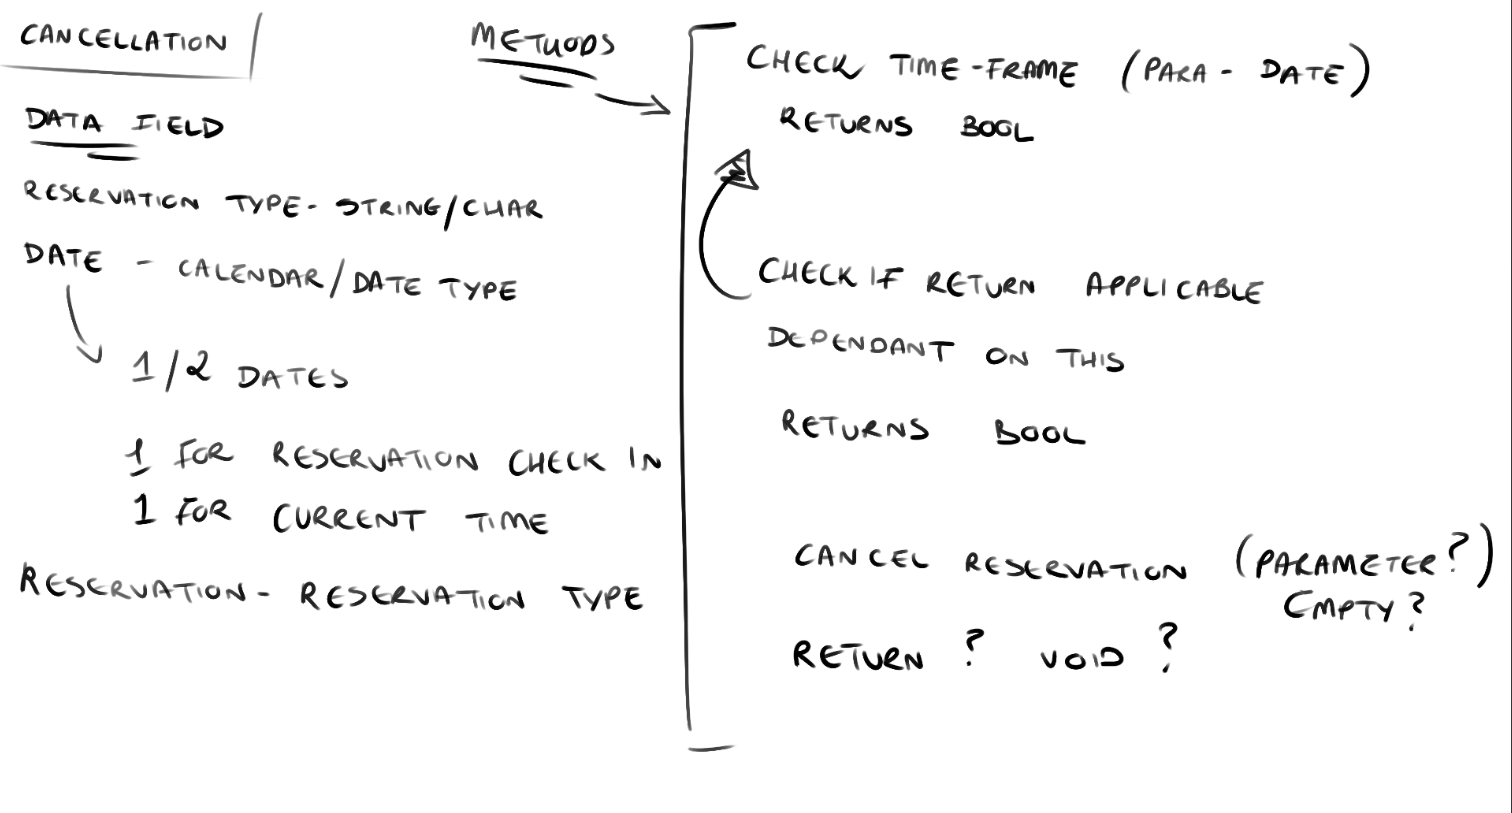 CANCELLATION
DATA FIELD
RESERVATION TYPE- STRING/CHAR
DATE - CALENDAR/DATE TYPE
1/2 DATES
1 FOR RESERVATION CHECK IN
1 FOR CURRENT TIME
RESERVATION- RESERVATION TYPE
METHODS
CHECK TIME-FRAME (PARA - DATE)
RETURNS BOOL
CHECK IF RETURN APPLICABLE
DEPENDANT ON THIS
RETURNS BOOL
CANCEL RESERVATION (PARAMETER?)
EMPTY?
RETURN ? VOID ?